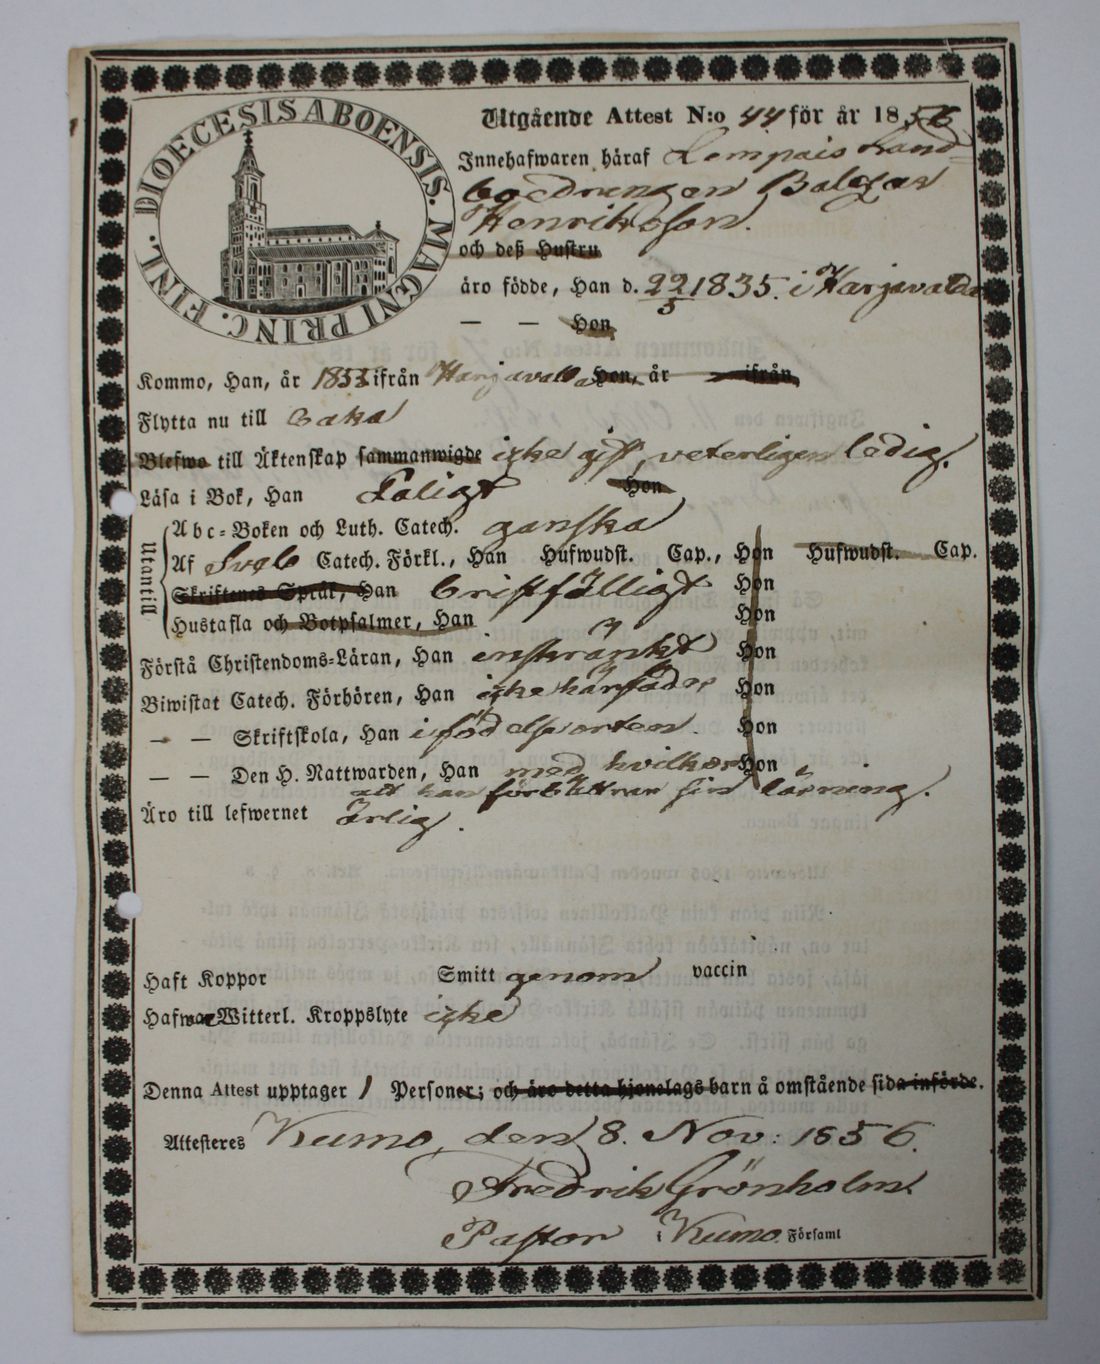 DIOECESIS ABOENSIS. MAGNI PRINC. FINL.
Utgående Attest N:o 44 för år 1856
Innehafwaren häraf Lempais Land
bo edrengen Baltzar
Henriksson.
och deß Hustru
äro födde, Han d. 22/5 1835. i Harjavalda
— — Hon
Kommo, Han, år 1853 ifrån Harjavalda Hon, år — ifrån
Flytta nu till
Blefwo till Äktenskap sammanwigde icke gift, veterligen ledig.
Läsa i Bok, Han Faligt Hon
Utantill
Abc-Boken och Luth. Catech. ganska
Af Sveb Catech. Förkl., Han Hufwudst. Cap., Hon Hufwudst. Cap.
Skriftenes Språk, Han bristfälligt Hon
Hustafla och Botpsalmer, Han Hon
Förstå Christendoms-Läran, Han inskränkt Hon
Biwistat Catech. Förhören, Han icke här, föder Hon
— — Skriftskola, Han i födelseorten. Hon
— — Den H. Nattwarden, Han med hvilkor Hon
att han förbättrar sin läsning.
Äro till lefwernet Ärlig.
Haft Koppor Smitt genom vaccin
Hafwa Witterl. Kroppslyte icke
Denna Attest upptager 1 Personer; och äro detta hjonelags barn å omstående sida införde.
Attesteres Kumo, den 8. Nov: 1856.
Fredrik Grönholm
Pastor i Kumo Församl